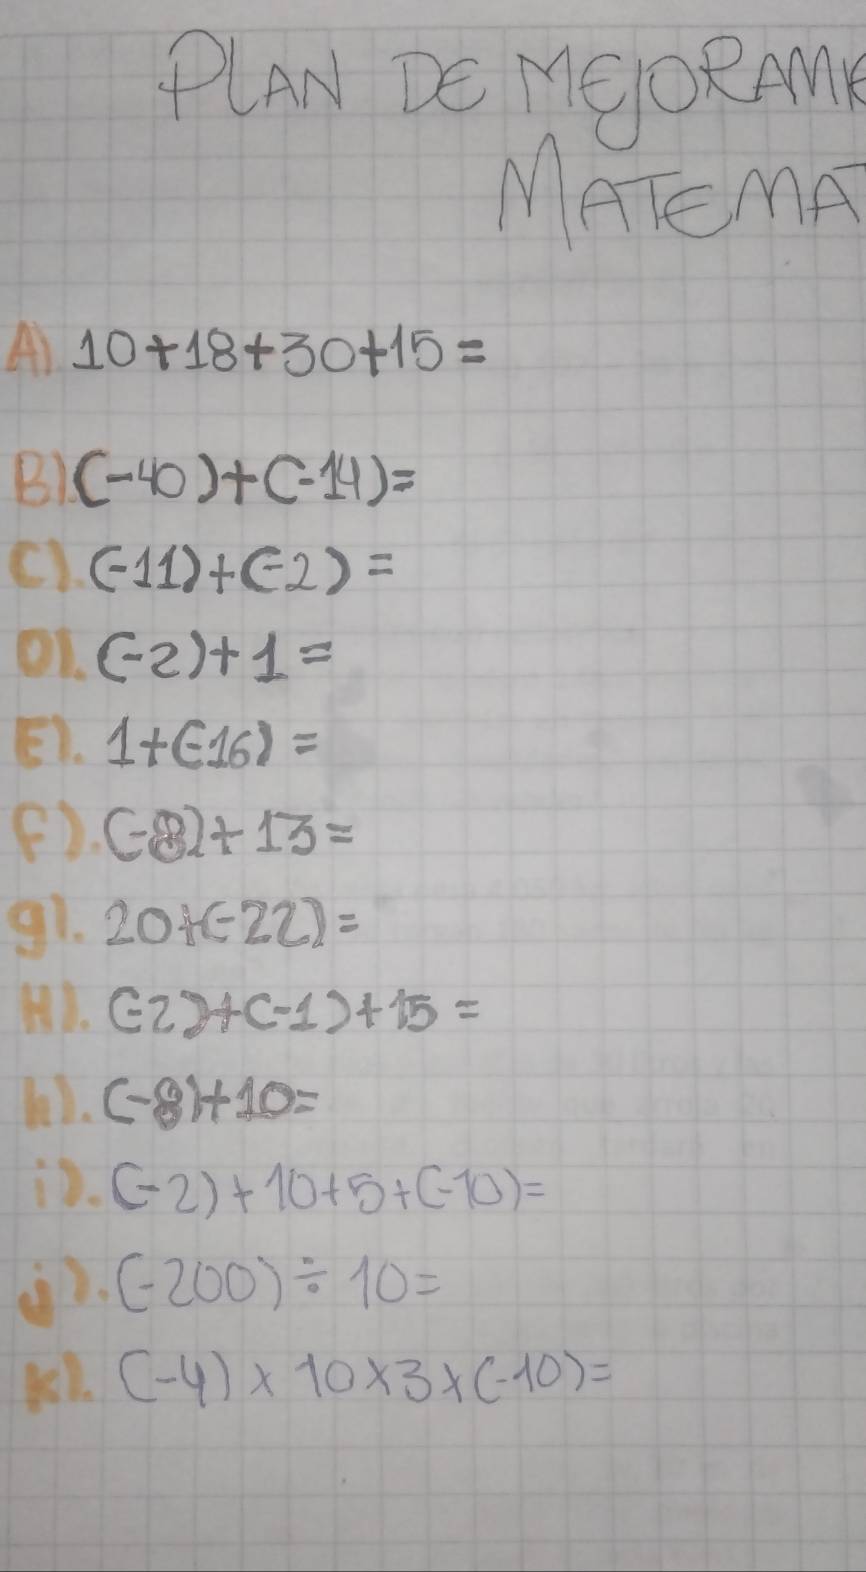 PLAN DE MEJORAMIE
MATEMAT
A) 10+18+30+15=
B). (-40)+(-14)=
C). (-11)+(-2)=
D). (-2)+1=
E). 1+(-16)=
F). (-8)+13=
g). 20+(-22)=
H). (-2)+(-1)+15=
h). (-8)+10=
i). (-2)+10+5+(-10)=
j). (-200)÷10=
k). (-4)x10x3x(-10)=